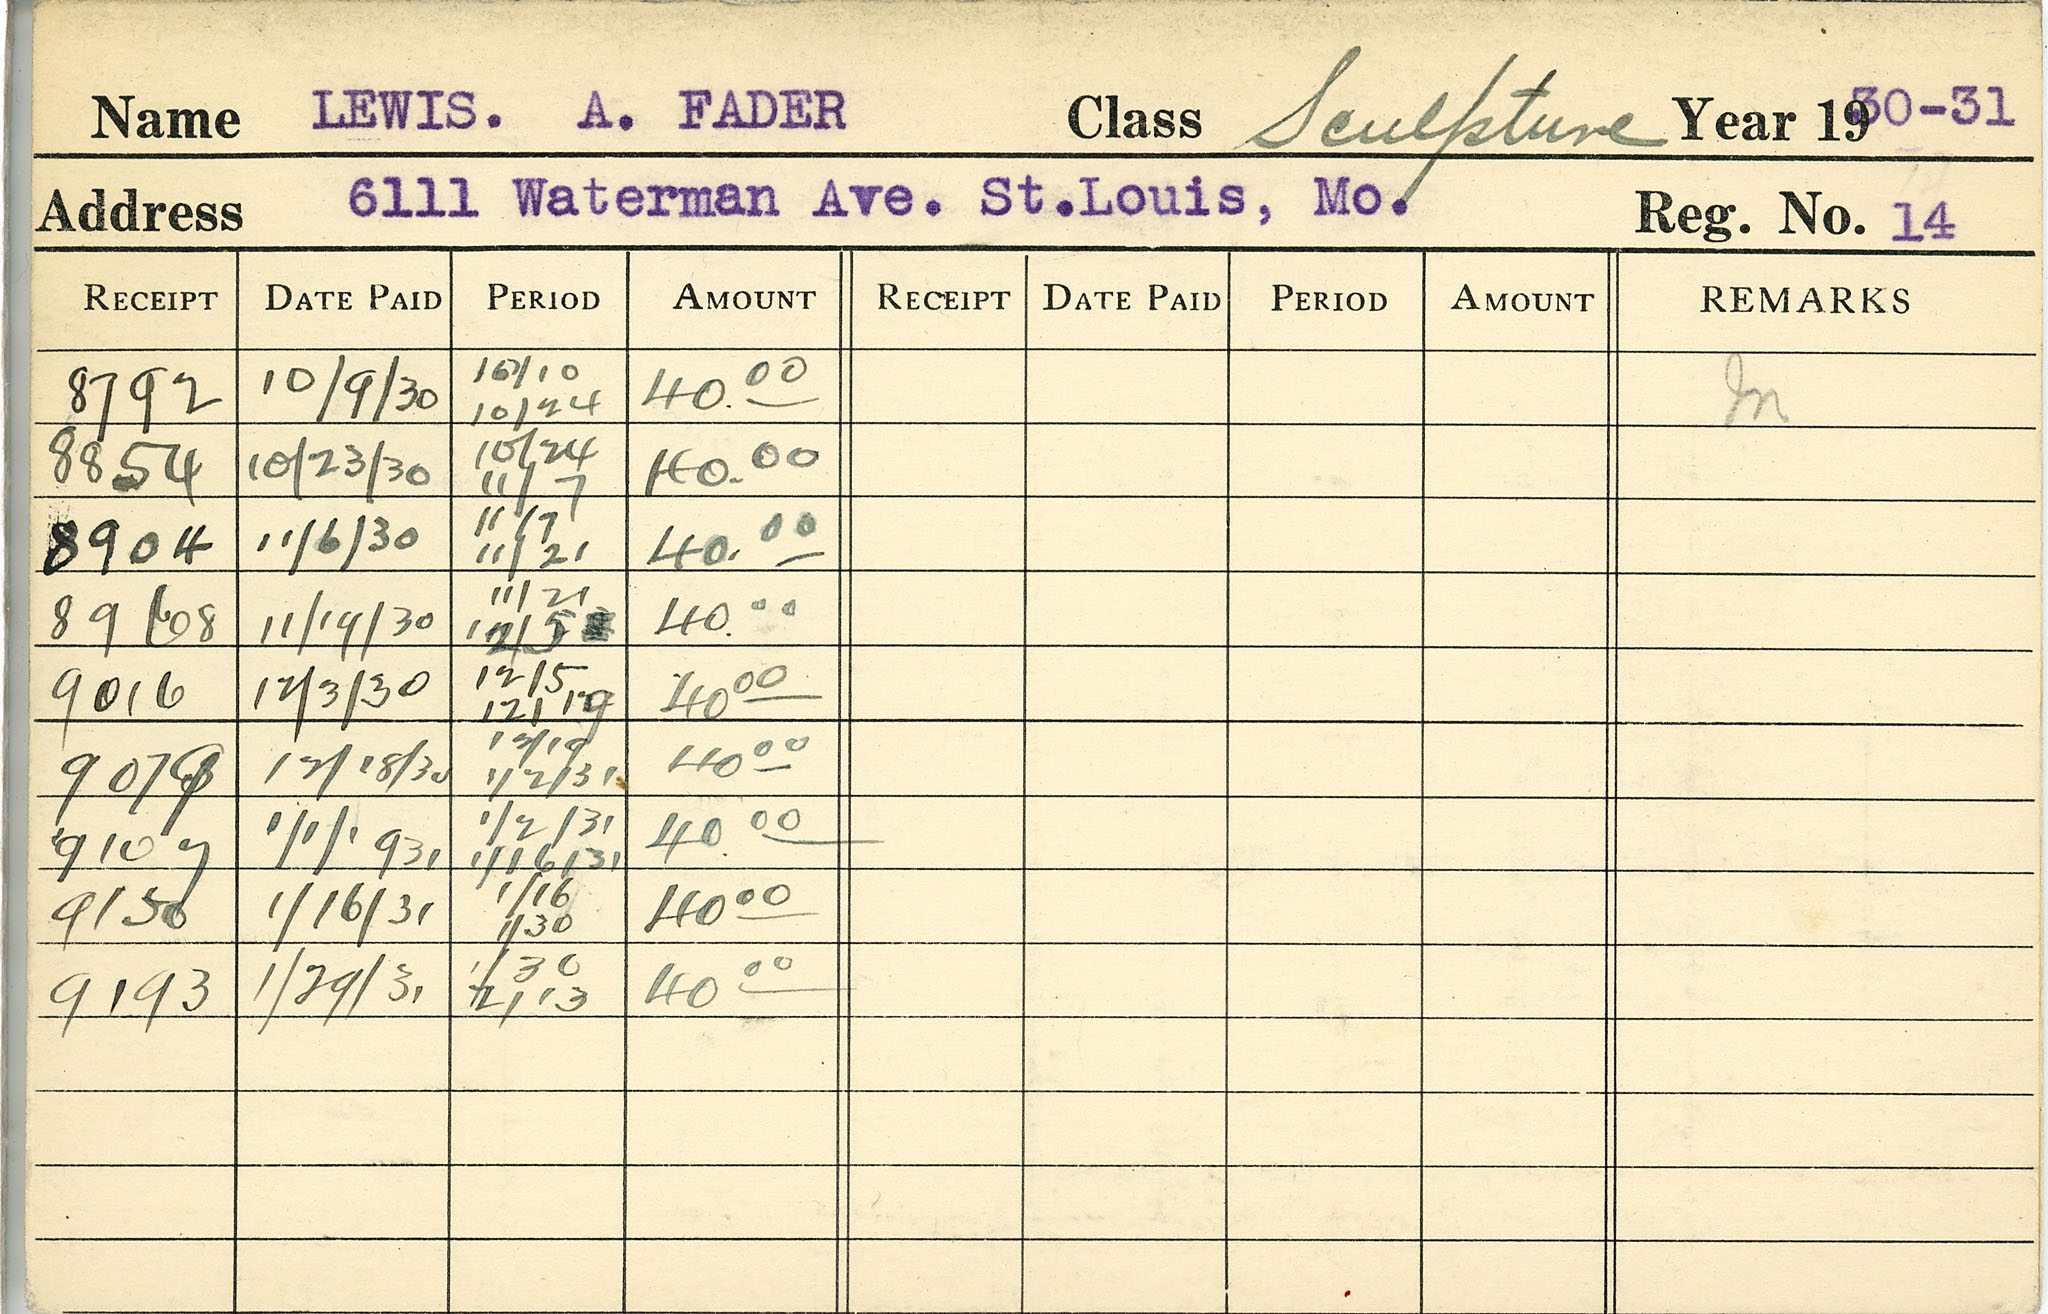 Name LEWIS. A. FADER Class Sculpture Year 1930-31
Address 6111 Waterman Ave. St.Louis, Mo. Reg. No. 14
RECEIPT DATE PAID PERIOD AMOUNT RECEIPT DATE PAID PERIOD AMOUNT REMARKS
8792 10/9/30 10/10 10/24 40.00 In
8854 10/23/30 10/24 11/7 40.00
8904 11/6/30 11/7 11/21 40.00
8968 11/19/30 11/21 12/5 40.00
9016 12/3/30 12/5 12/19 4000
12/18/30 12/19 1/2/31 4000
9107 1/1/1931 1/2/31 1/16/31 40.00
9150 1/16/31 1/16 1/30 4000
9193 1/29/31 1/30 2/13 4000